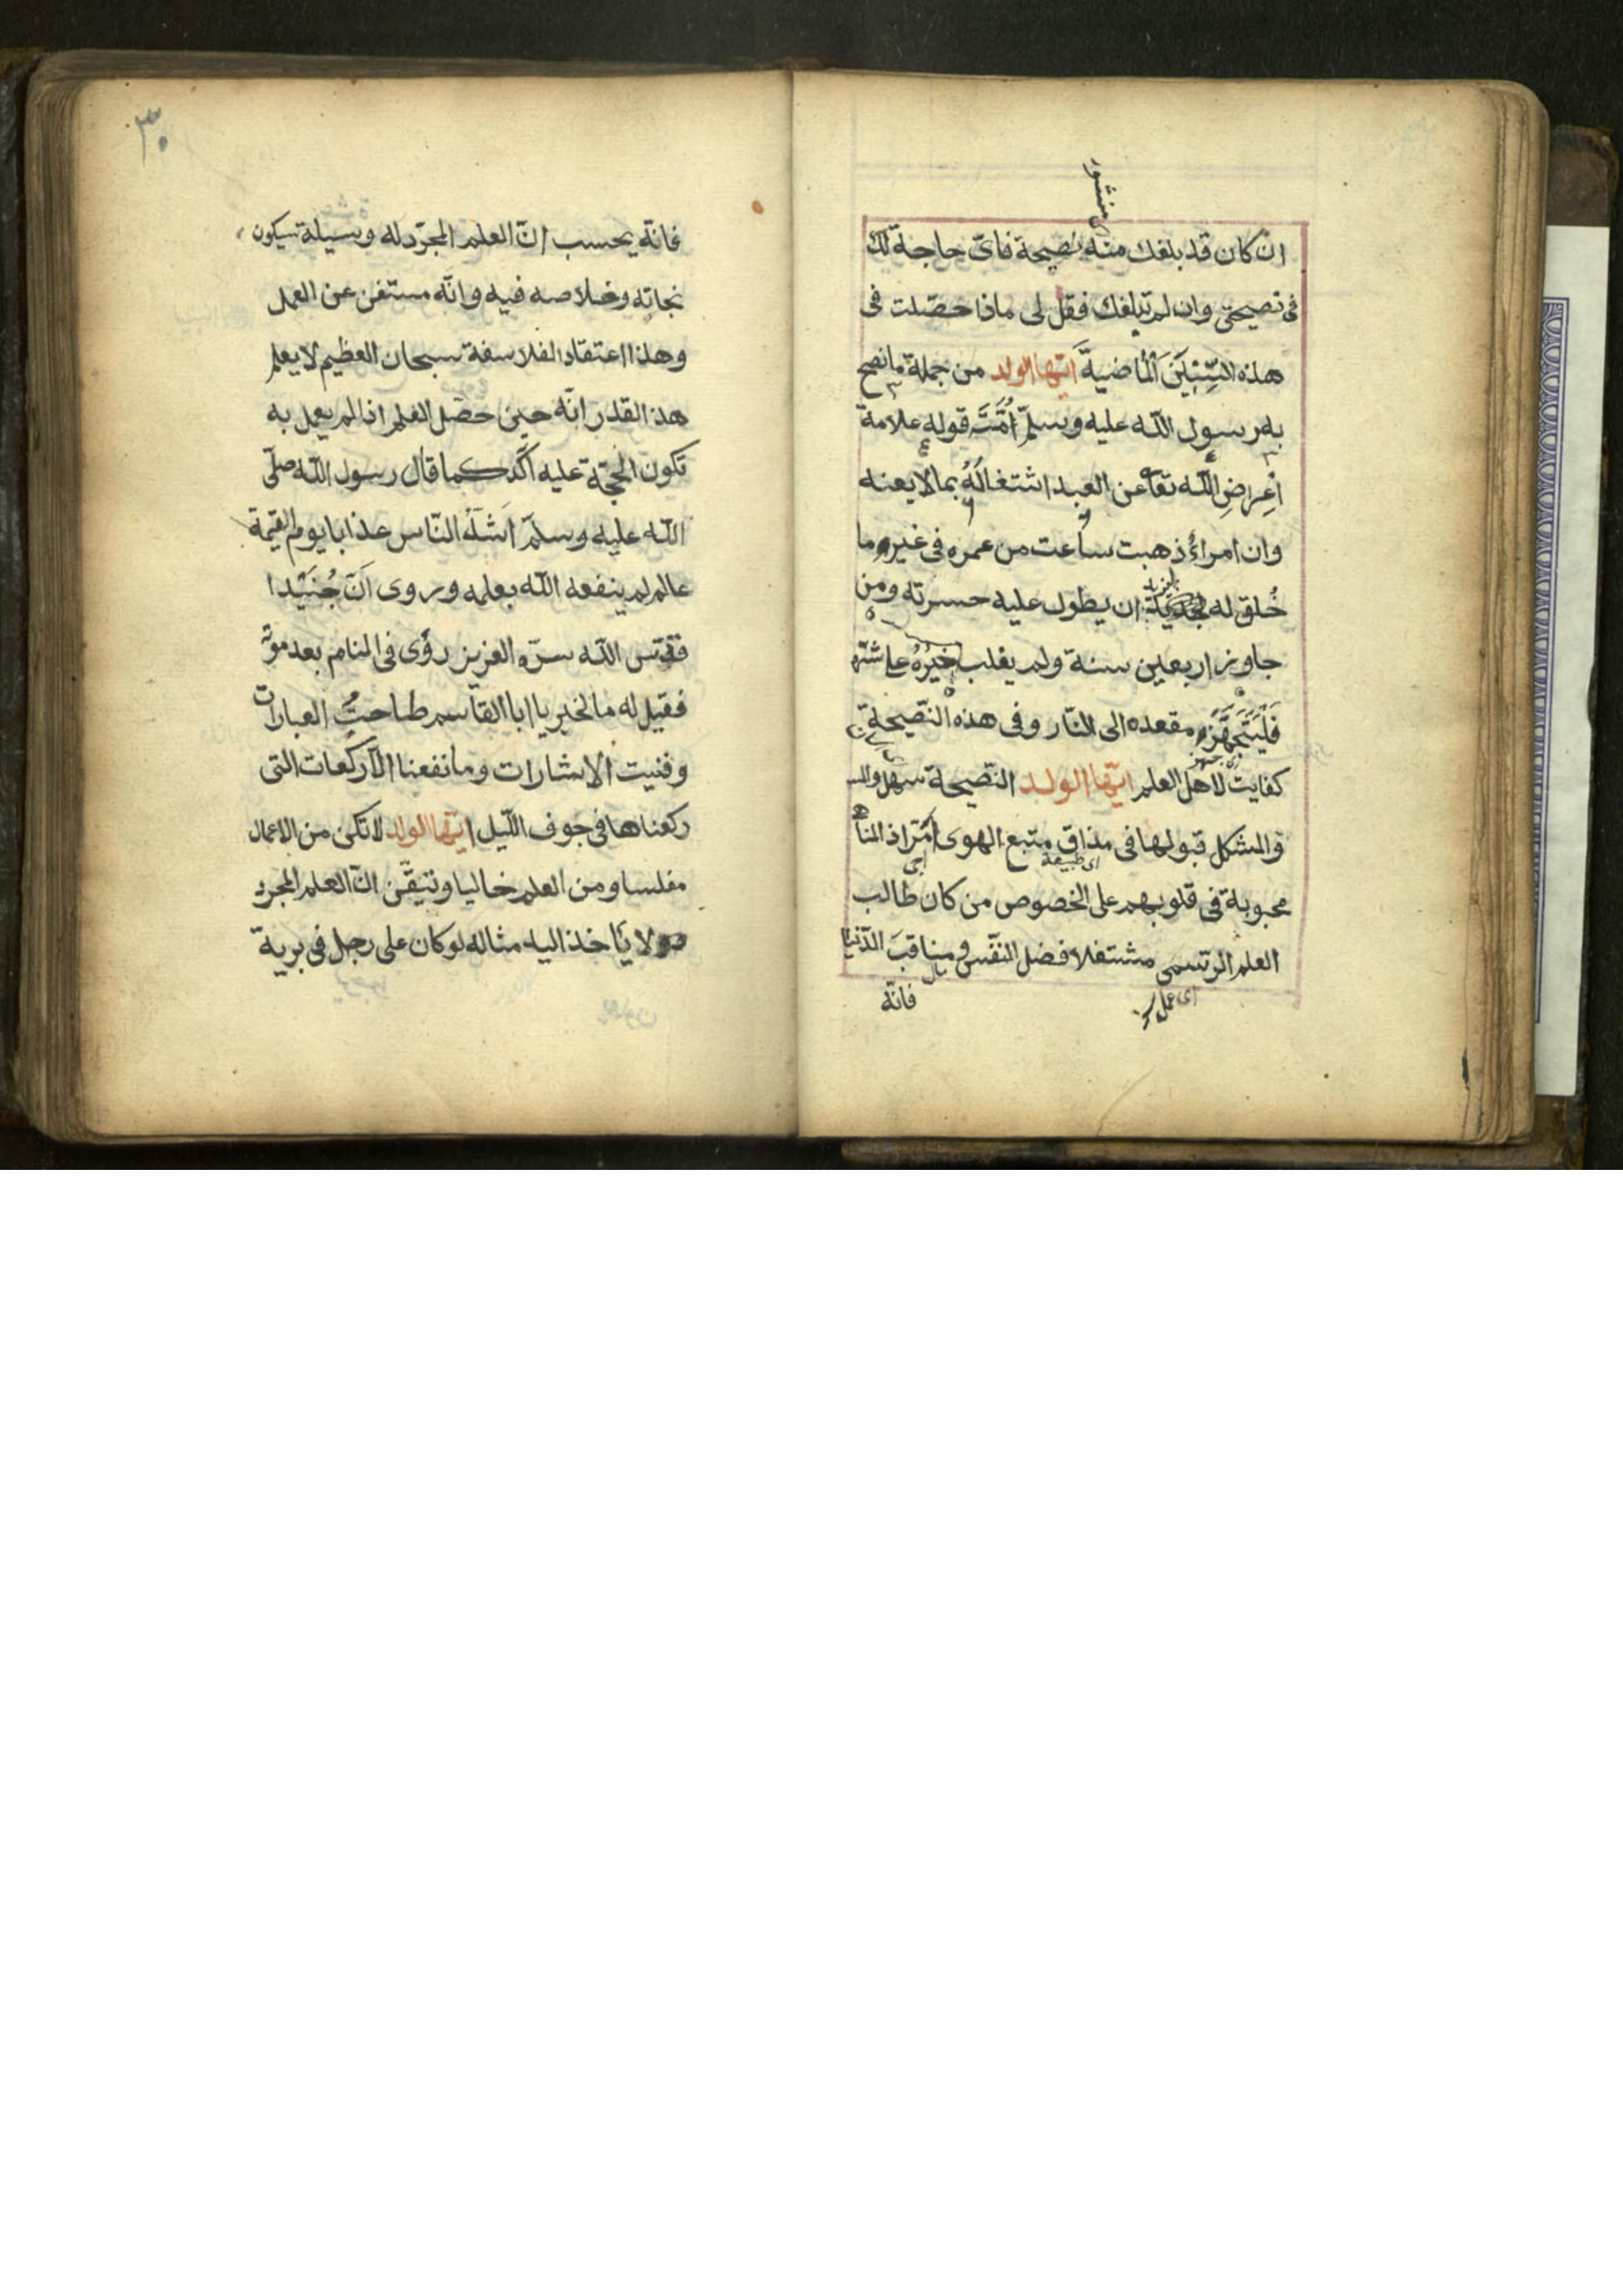 منشور
ان كان قد بلغك منه نصيحة فاىّ حاجة لك
فى نصيحتى وان لم تبلغك فقل لى ماذا حصّلت فى
هذه السِّنِيَن الْماضيةَّ ايّها الولد من جملة ما نصح
به رسول اللّه عليه وسلّم اُمَّتَ قوله علامة
اْعِراضِ اللّه تعاٰ عن العبد اشتغالُهُ بما لا يعنه
وان امراءً ذهبت ساعت من عمره فى غير ما
خُلق له ان يطول عليه حسرته ومن
جاوز اربعين سنة ولم يغلب خيرُهُ على شتّه
فَلْيَتَجَهَّزْ مقعده الى النّار وفى هذه النّصيحة
كفايت لاهل العلم ايّها الولد النّصيحة سهل
والمشكل قبولها فى مذاق متبع الهوى مُرّ اذ المنا
اى طبيعة
محبوبة فى قلوبهم على الخصوص من كان طالب
العلم الرّسمى مشتغلا فضل النّفس و مناقبَ الدّنيا
اى عمل
فانّه
٣٠
فانّه يحسب انّ العلم المجرّد له وسيلة سيكون
نجاته وخلاصه فيه وانّه مستغن عن العمل
وهذا اعتقاد الفلاسفة سبحان العظيم لا يعلم
هذ القدر انّه حين حصّل العلم اذا لم يعمل به
تكون الحجّة عليه اَكّد كما قال رسول اللّه صلّى
اللّه عليه وسلّم اَشدّ النّاس عذابا يوم القيمة
عالم لم ينفعه اللّه بعلمه وروى اَنّ جُنَيْدا
قدّس اللّه سرّه العزيز رؤى فى المنام بعد موته
فقيل له ما الخبر يا ابا القاسم طاحت العبارات
وفنيت الاشارات وما نفعنا الّا ركعات التى
ركعناها فى جوف اللّيل ايّها الولد لا تكن من الاعمال
مفلسا ومن العلم خاليا وتيقّن انّ العلم المجرد
لا يأخذ اليد مثاله لو كان على رجل فى برية